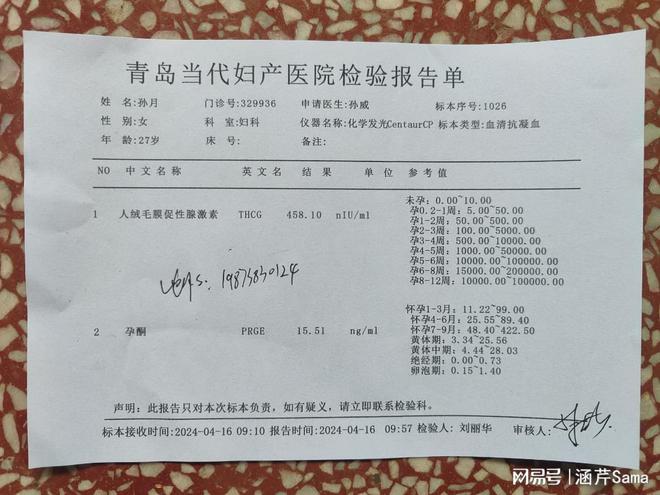 青岛当代妇产医院检验报告单
姓 名:孙月 门诊号:329936 申请医生:孙威 标本序号:1026
性 别:女 科 室:妇科 仪器名称:化学发光CentaurCP 标本类型:血清抗凝血
年 龄:27岁 床 号: 备注:
NO 中文名称 英文名 结 果 单 位 参考值
1 人绒毛膜促性腺激素 THCG 458.10 nIU/ml 未孕: 0.00~10.00
孕0.2-1周: 5.00~50.00
孕1-2周: 50.00~500.00
孕2-3周: 100.00~5000.00
孕3-4周: 500.00~10000.00
孕4-5周: 1000.00~50000.00
孕5-6周: 10000.00~100000.00
孕6-8周: 15000.00~200000.00
孕8-12周: 10000.00~100000.00
19873830124
2 孕酮 PRGE 15.51 ng/ml 怀孕1-3月: 11.22~99.00
怀孕4-6月: 25.55~89.40
怀孕7-9月: 48.40~422.50
黄体期: 3.34~25.56
黄体中期: 4.44~28.03
绝经期: 0.00~0.73
卵泡期: 0.15~1.40
声明: 此报告只对本次标本负责, 如有疑义, 请立即联系检验科。
标本接收时间:2024-04-16 09:10 报告时间:2024-04-16 09:57 检验人: 刘丽华 审核人:
网易号|涵芹Sama